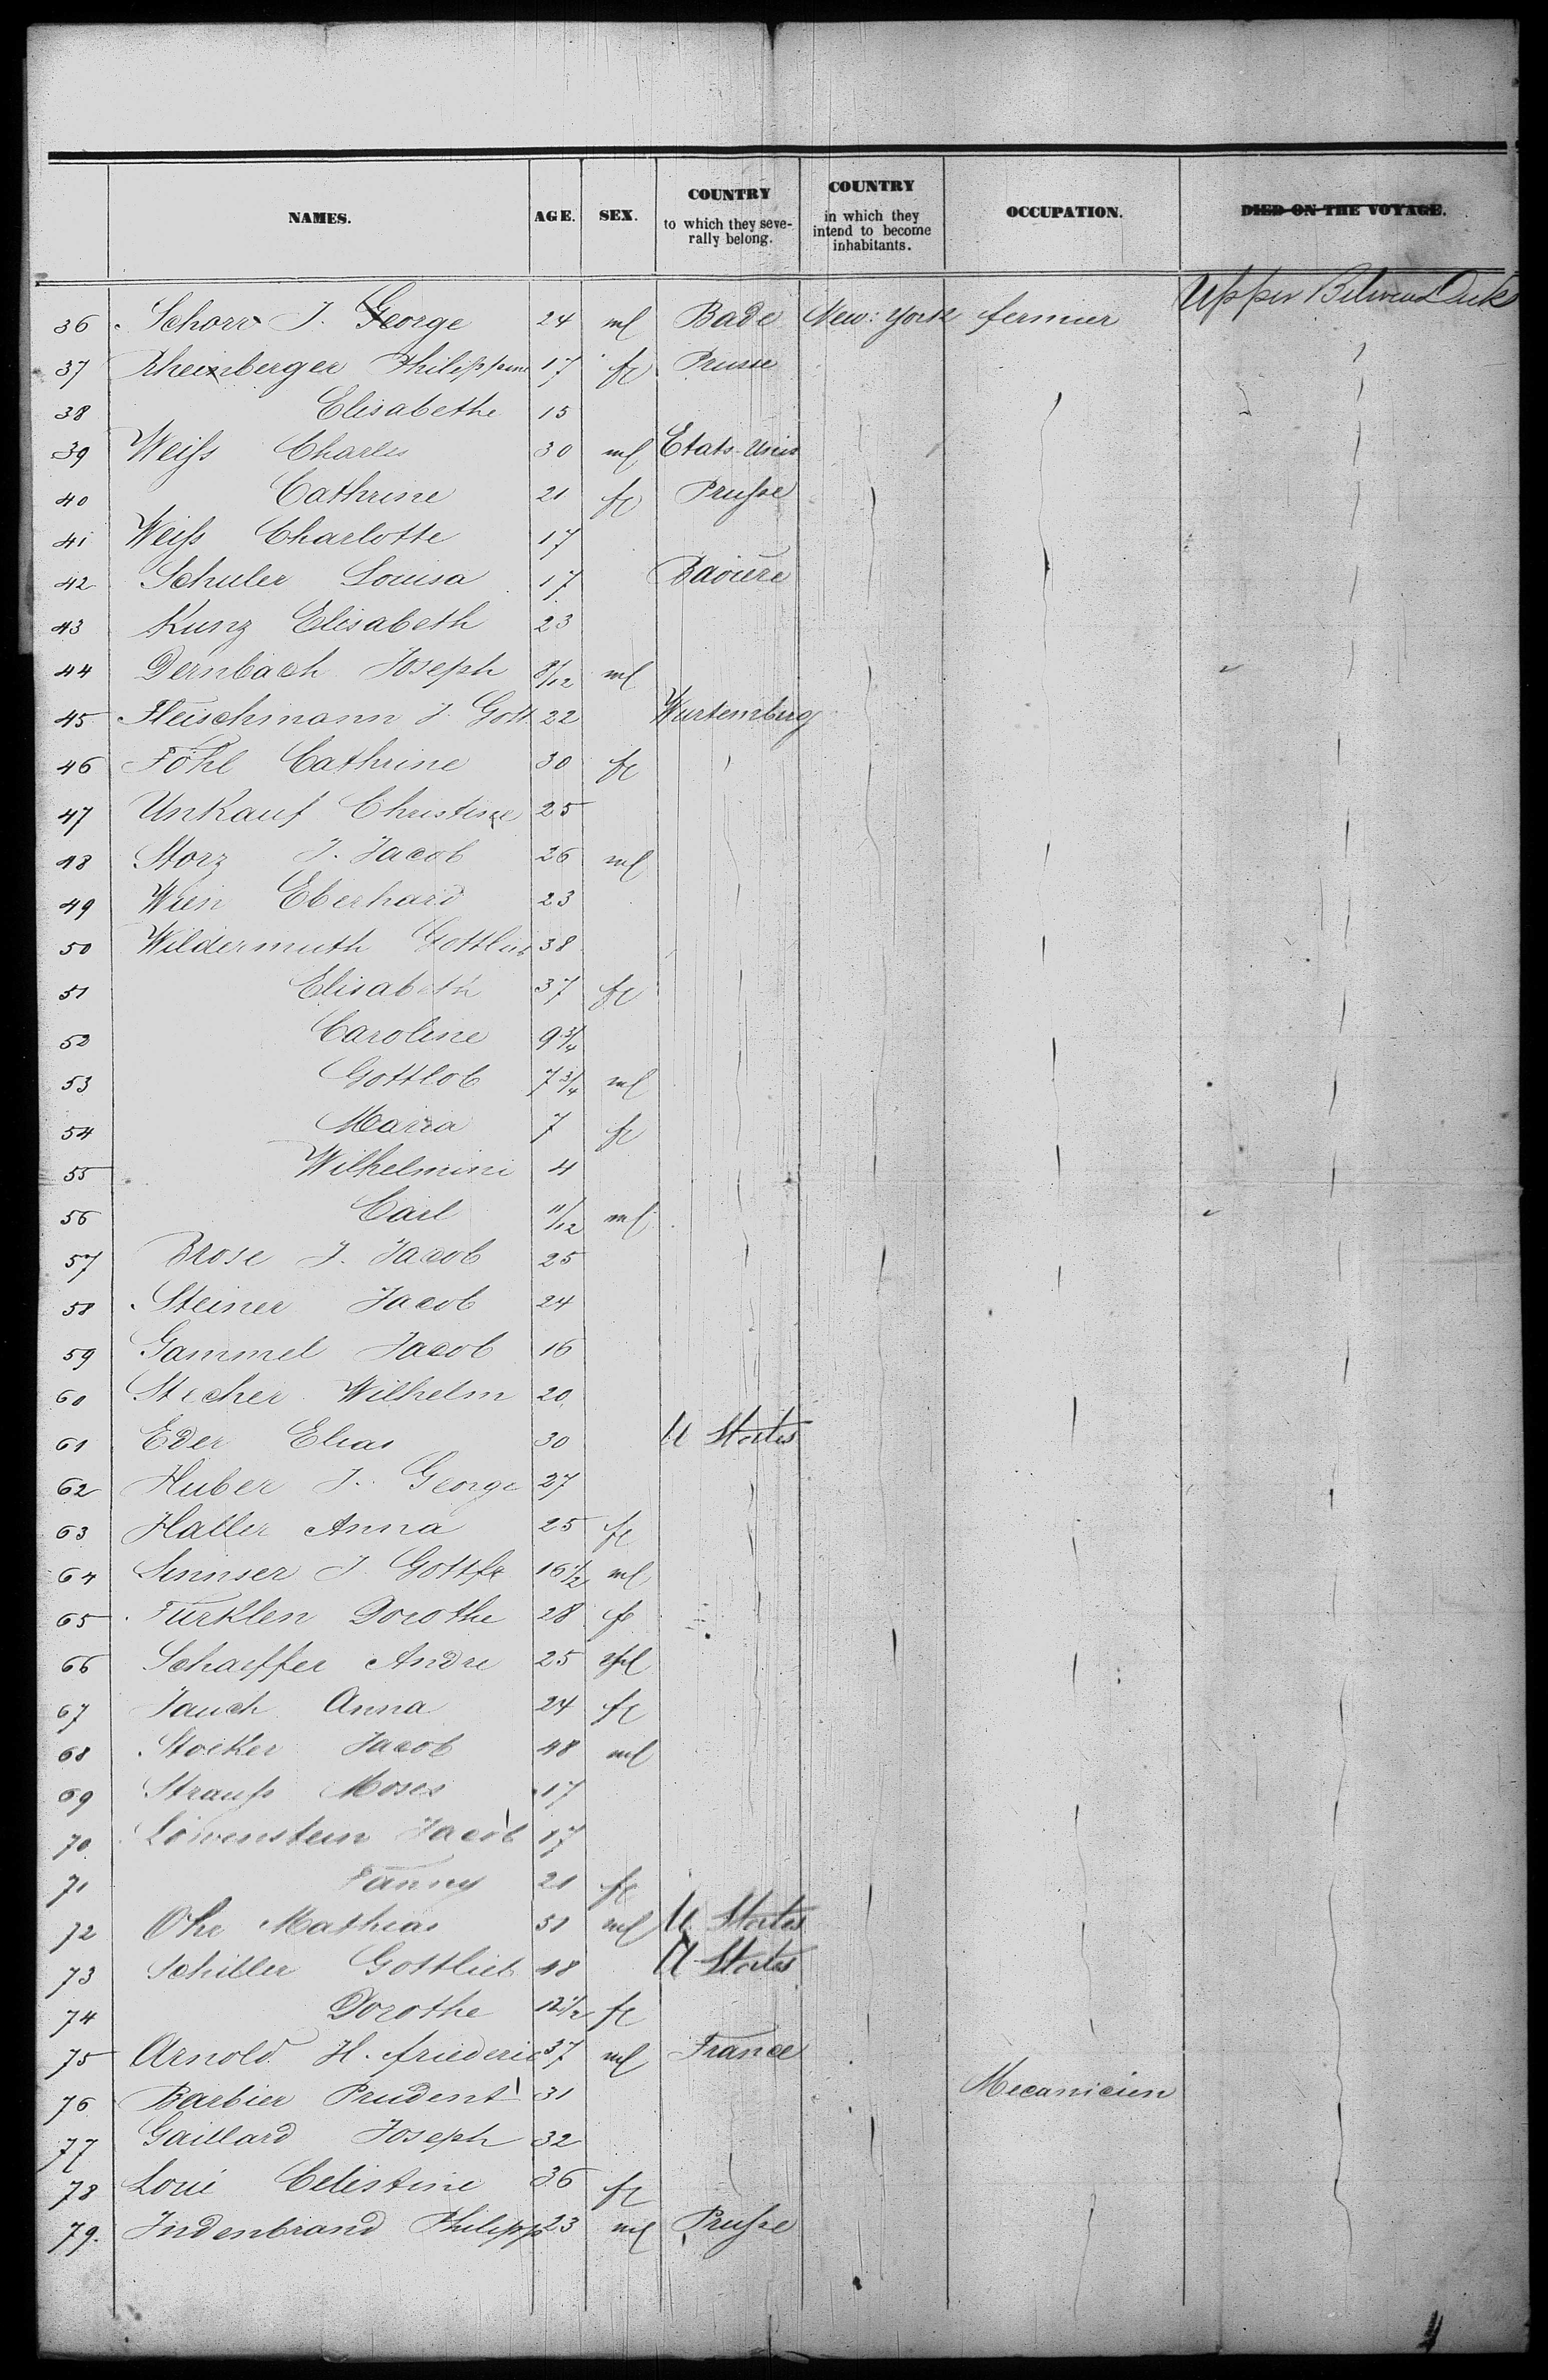 NAMES. AGE. SEX. COUNTRY to which they severally belong. COUNTRY in which they intend to become inhabitants. OCCUPATION. DIED ON THE VOYAGE.
36 Schorr J. George 24 ml Bade New: York fermier Upper Between Decks
37 Rheinberger Philippine 17 fe Prusse
38 Elisabethe 15
39 Weiſs Charles 30 ml Etats-Unis
40 Cathrine 21 fe Pruſse
41 Weiſs Charlotte 17
42 Schuler Louisa 17 Baviere
43 Kunz Elisabeth 23
44 Dernbach Joseph 8/12 ml
45 Fleischmann J. Gott 22 Wurtemberg
46 Föhl Cathrine 30 fe
47 Unkauf Christine 25
48 Storz J. Jacob 26 ml
49 Wien Eberhard 23
50 Wildermuth Gottlieb 38
51 Elisabeth 37 fe
52 Caroline 9 3/4
53 Gottlob 7 3/4 ml
54 Maria 7 fe
55 Wilhelmine 4
56 Carl 11/12 ml
57 Brose J. Jacob 25
58 Steiner Jacob 24
59 Gammel Jacob 16
60 Stecher Wilhelm 20
61 Eder Elias 30 U States
62 Huber J. George 27
63 Haller Anna 25 fe
64 J. Gottfr 16 1/2 ml
65 Türklen Dorothe 28 fe
66 Schaffer Andre 25 ml
67 Jauch Anna 24 fe
68 Stocker Jacob 48 ml
69 Strauſs Moses 17
70 Löwenstein Jacob 17
71 Fanny 21 fe
72 Ohr Mathias 51 ml U States
73 Schiller Gottlieb 48 U States
74 Dorothe 12 1/2 fe
75 Arnold H. friederic 37 ml France
76 Barbier Prudent 31 Mecanicien
77 Gaillard Joseph 32
78 Loui Celestine 36 fe
79. Indenbrand Philipp 23 ml Pruſse